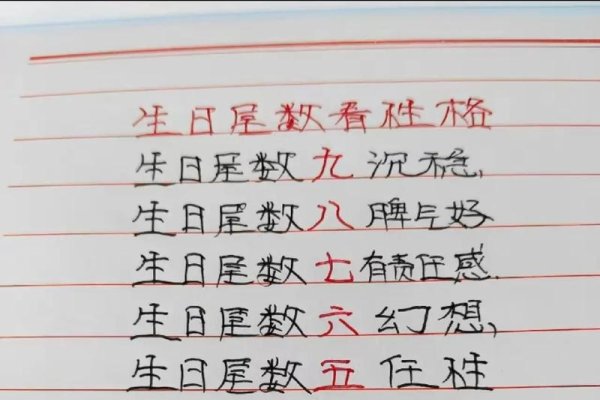 生日尾数看性格
生日尾数九沉稳,
生日尾数八脾气好
生日尾数七有责任感.
生日尾数六幻想,
生日尾数五任性